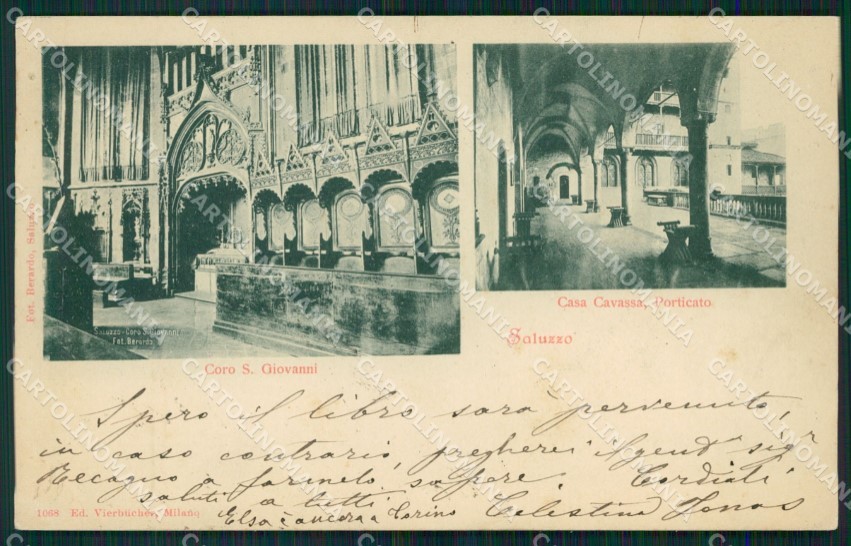 Fot. Berardo, Saluzzo
Saluzzo - Coro S. Giovanni
Fot. Berardo
Coro S. Giovanni
Casa Cavassa, Porticato
Saluzzo
Spero il libro sarà pervenuto,
in caso contrario, pregherei il gent° sigr
a farmelo sapere. Cordiali
saluti a tutti Celestina
Elsa è ancora a Torino
1068 Ed. Vierbücher, Milano
CARTOLINOMANIA